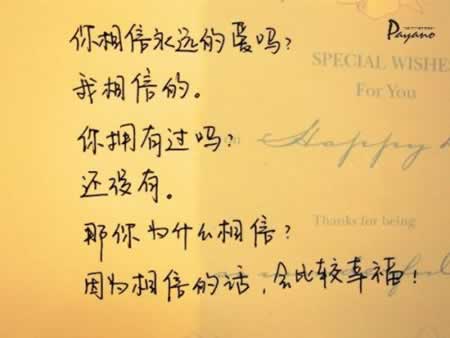 Payano
你相信永远的爱吗?
SPECIAL WISHES
我相信的。
For You
你拥有过吗?
Happy
还没有。
Thanks for being
那你为什么相信?
因为相信的话，会比较幸福!